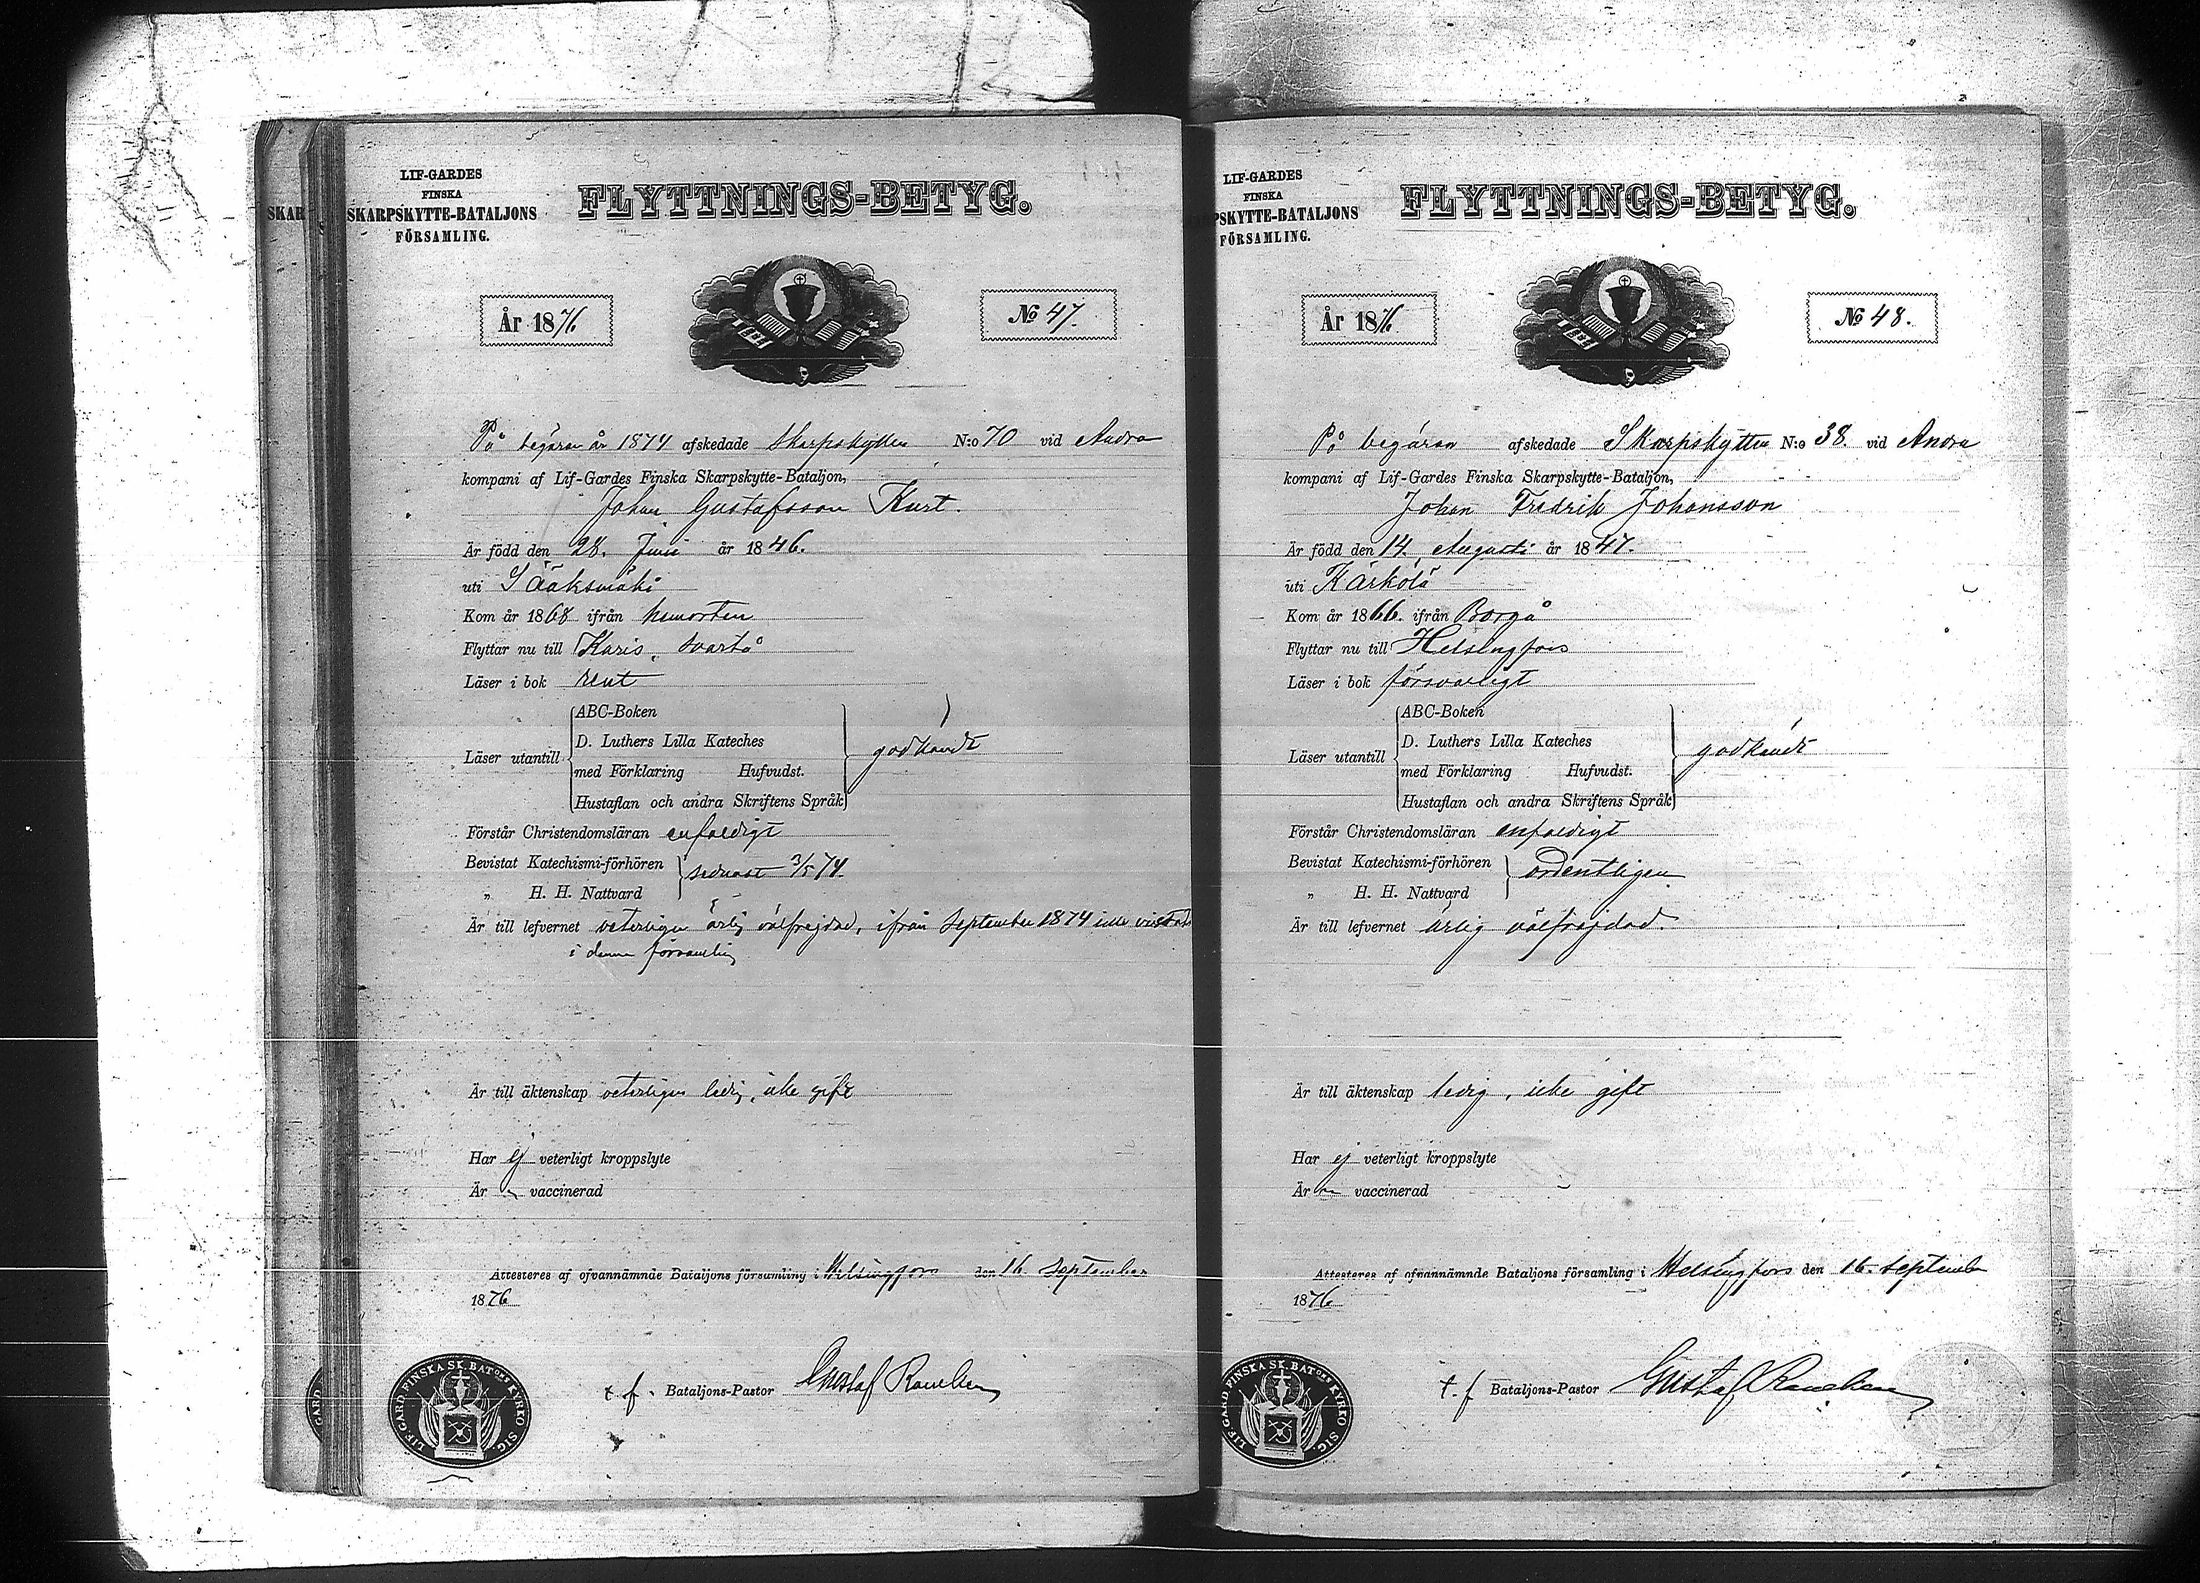 SKAR
LIF-GARDES
FINSKA
SKARPSKYTTE-BATALJONS
FÖRSAMLING.
FLYTTNINGS-BETYG.
År 1876
No 47.
På begäran år 1874 afskedade Skarpskytten N:o 70 vid Andra
kompani af Lif-Gardes Finska Skarpskytte-Bataljon,
Johan Gustafsson Kurt.
Är född den 28. Juni år 1846.
uti Sääksmäki
Kom år 1868 ifrån hemorten
Flyttar nu till Karis, Svartå
Läser i bok rent
Läser utantill
ABC-Boken
D. Luthers Lilla Kateches
med Förklaring Hufvudst.
Hustaflan och andra Skriftens Språk
godkändt
Förstår Christendomsläran enfaldigt
Bevistat Katechismi-förhören
„ H. H. Nattvard
sednast 3/5 74.
Är till lefvernet veterligen ärlig välfrejdad, ifrån September 1874 icke vistats
i denna församling
Är till äktenskap veterligen ledig, icke gift
Har ej veterligt kroppslyte
Är vaccinerad
Attesteres af ofvannämnde Bataljons församling i Helsingfors den 16. September
1876
t. f. Bataljons-Pastor Gustaf
LIF.GARD.FINSKA SK.BATONS KYRKO SIG.
GARD
LIF-GARDES
FINSKA
PSKYTTE-BATALJONS
FÖRSAMLING.
FLYTTNINGS-BETYG.
År 1876
No 48.
På begäran afskedade Skarpskytten N:o 38. vid Andra
kompani af Lif-Gardes Finska Skarpskytte-Bataljon,
Johan Fredrik Johansson
Är född den 14. Augusti år 1847.
uti Kärkölä
Kom år 1866. ifrån Borgå
Flyttar nu till Helsingfors
Läser i bok försvarligt
Läser utantill
ABC-Boken
D. Luthers Lilla Kateches
med Förklaring Hufvudst.
Hustaflan och andra Skriftens Språk
godkändt
Förstår Christendomsläran enfaldigt
Bevistat Katechismi-förhören
„ H. H. Nattvard
ordentligen
Är till lefvernet ärlig välfräjdad.
Är till äktenskap ledig, icke gift
Har ej veterligt kroppslyte
Är vaccinerad
Attesteres af ofvannämnde Bataljons församling i Helsingfors den 16. September
1876
t. f Bataljons-Pastor Gustaf
LIF.GARD.FINSKA SK.BATONS KYRKO SIG.